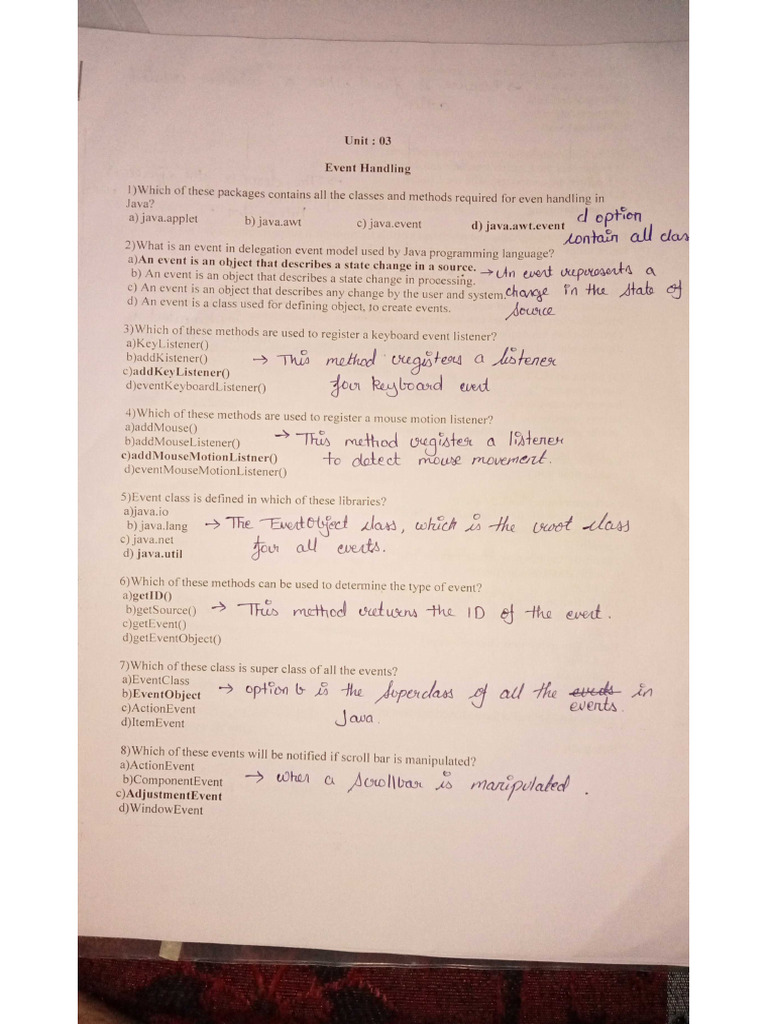 Unit : 03
Event Handling
1)Which of these packages contains all the classes and methods required for even handling in
Java?
a) java.applet b) java.awt c) java.event d) java.awt.event d option
contain all clas
2)What is an event in delegation event model used by Java programming language?
a)An event is an object that describes a state change in a source. → An event represents a
b) An event is an object that describes a state change in processing.
c) An event is an object that describes any change by the user and system. change in the state of
d) An event is a class used for defining object, to create events. source
3)Which of these methods are used to register a keyboard event listener?
a)KeyListener()
b)addKistener() → This method registers a listener
c)addKeyListener()
d)eventKeyboardListener() for keyboard event
4)Which of these methods are used to register a mouse motion listener?
a)addMouse()
b)addMouseListener() → This method register a listener
c)addMouseMotionListner() to detect mouse movement.
d)eventMouseMotionListener()
5)Event class is defined in which of these libraries?
a)java.io
b) java.lang → The EventObject class, which is the root class
c) java.net for all events.
d) java.util
6)Which of these methods can be used to determine the type of event?
a)getID()
b)getSource() → This method returns the ID of the event.
c)getEvent()
d)getEventObject()
7)Which of these class is super class of all the events?
a)EventClass
b)EventObject → option b is the superclass of all the in
c)ActionEvent events.
d)ItemEvent Java.
8)Which of these events will be notified if scroll bar is manipulated?
a)ActionEvent
b)ComponentEvent → when a scrollbar is manipulated.
c)AdjustmentEvent
d)WindowEvent